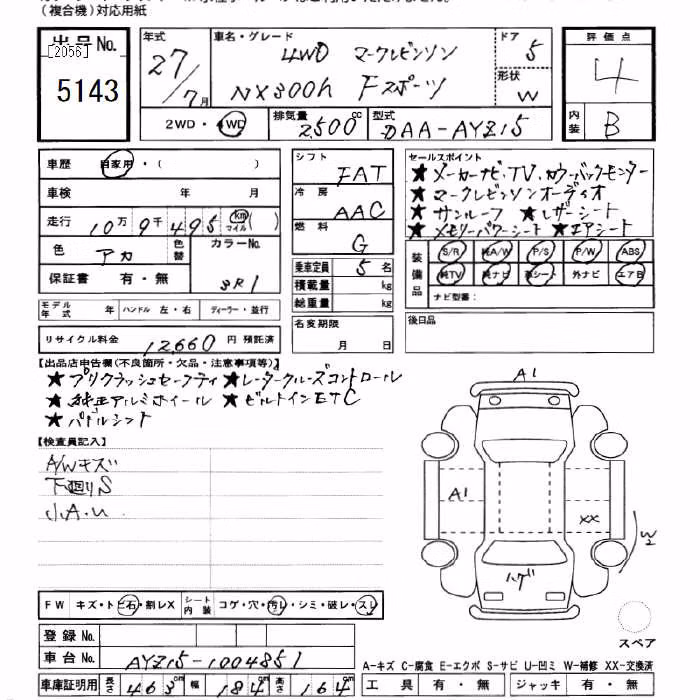 (複合機)対応用紙
出品No.
[2056]
5143
年式
27/7月
車名・グレード
4WD マークレビンソン
NX300h Fスポーツ
ドア
5
形状
W
評価点
4
内装
B
2WD・4WD
排気量
2,500cc
型式
DAA-AYZ15
車歴 自家用・( )
車検 年 月
走行 10万9千495 km マイル( )
色 アカ
色替
カラーNo.
3R1
保証書 有・無
シフト
FAT
冷房
AAC
燃料
G
乗車定員 5名
積載量 kg
総重量 kg
セールスポイント
★メーカーナビ、TV、カラーバックモニター
★マークレビンソンオーディオ
★サンルーフ ★レザーシート
★メモリーパワーシート ★エアシート
装備品
S/R 純A/W P/S P/W ABS
純TV 純ナビ 革シート 外ナビ エアB
ナビ型番:
モデル年式 年 ハンドル 左・右 ディーラー・並行
リサイクル料金 12,660円 預託済
名変期限
月 日
後日品
【出品店申告欄(不良箇所・欠品・注意事項等)】
★プリクラッシュセーフティ ★レーダークルーズコントロール
★純正アルミホイール ★ビルトインETC
★パドルシフト
【検査員記入】
A/Wキズ
下廻りS
小A.U
A1
A1
XX
W2
ハゲ
スペア
FW キズ・トビ石・割レX
シート内装 コゲ・穴・汚レ・シミ・破レ・スレ
登録No.
車台No. AYZ15-1004851
車庫証明用 長さ 463cm 幅 184cm 高さ 164cm
A-キズ C-腐食 E-エクボ S-サビ U-凹ミ W-補修 XX-交換済
工具 有・無 ジャッキ 有・無